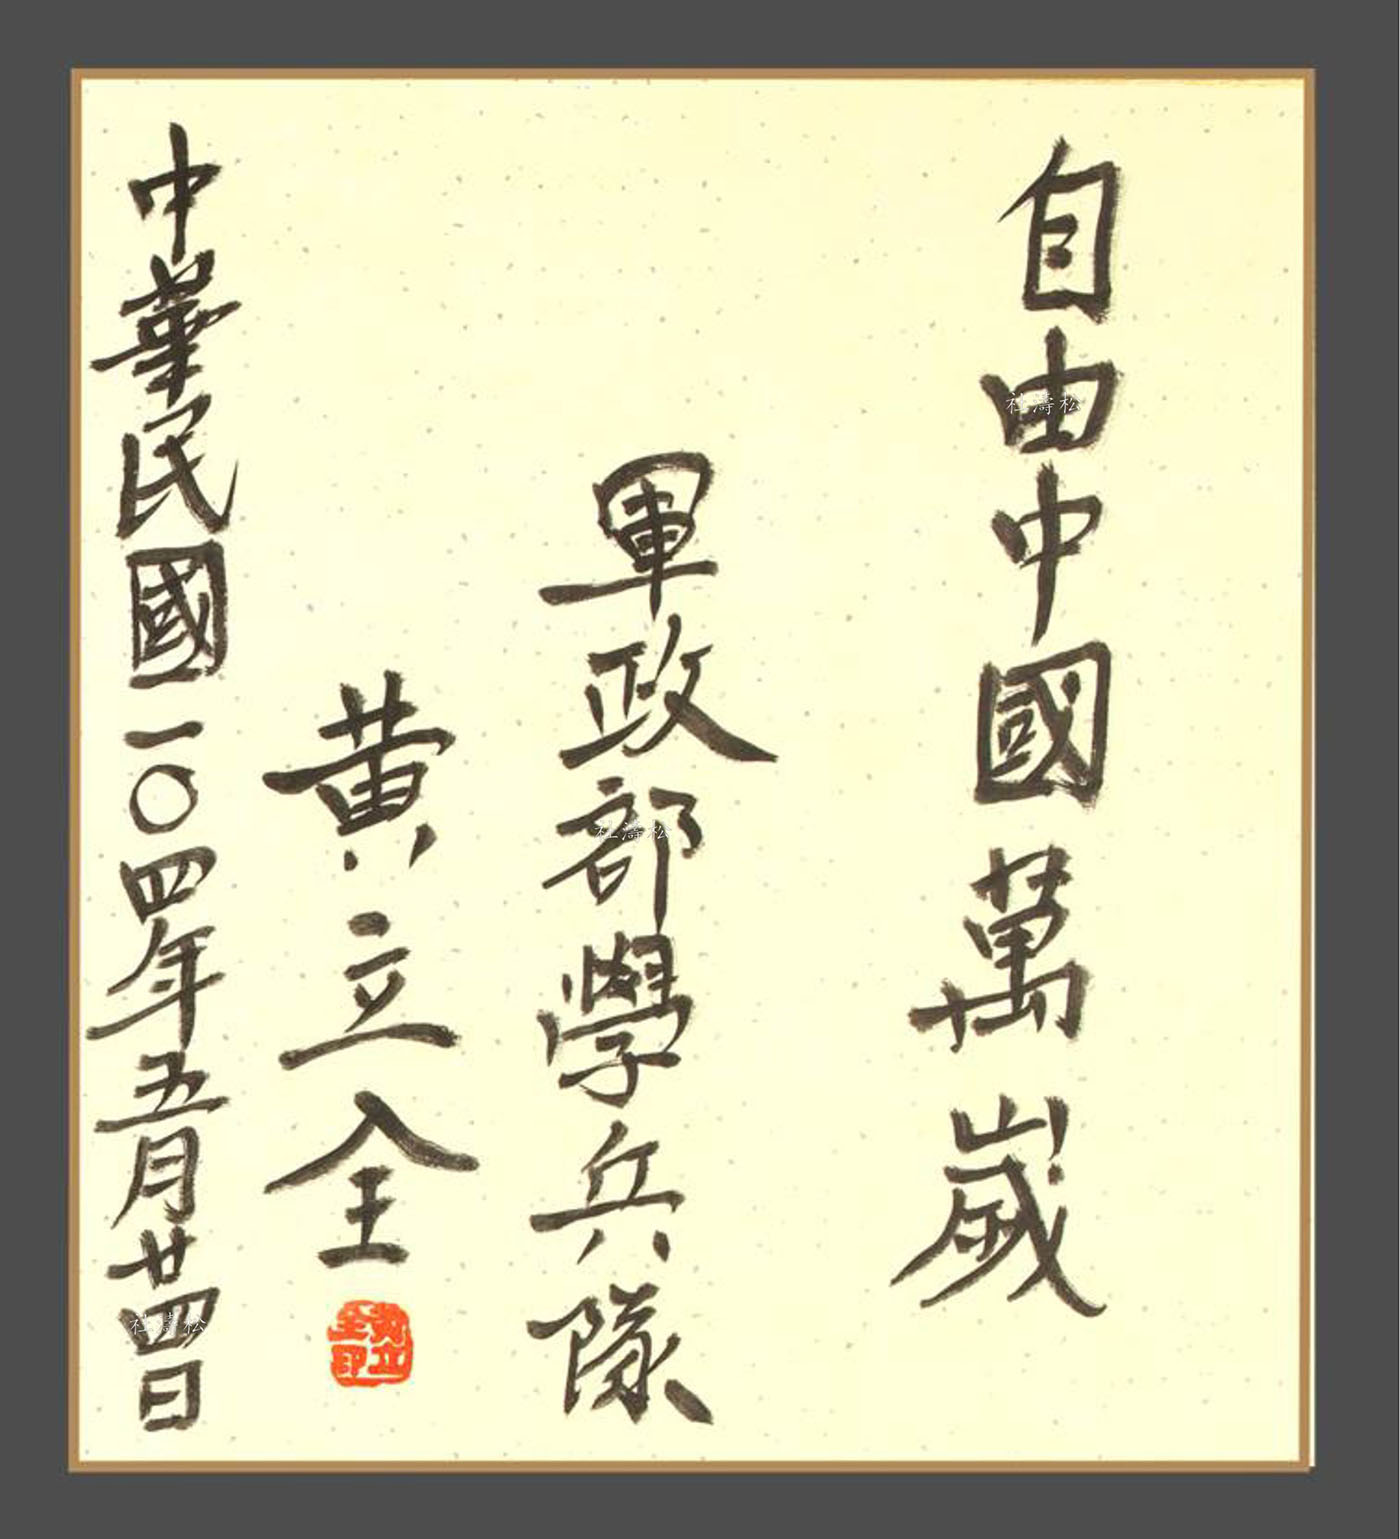 自由中國萬歲
軍政部學兵隊
黃立全
黃立全印
中華民國一〇四年五月廿四日
松濤社
松濤社
松濤社